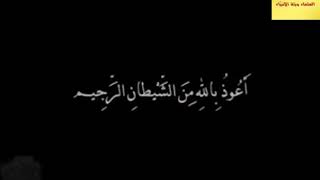 العلماء ورثة الأنبياء
أَعُوذُ بِاللهِ مِنَ الشَّيْطَانِ الرَّجِيمِ